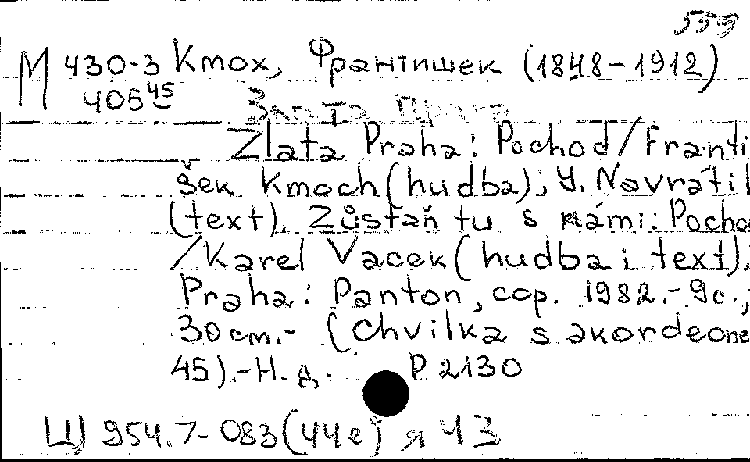 559
М 430-3 Кмох, Франтишек (1848-1912)
40545
Злата Прага
Zlata Praha: Pochod/Franti
šek Kmoch (hudba); Y. Navratil
(text). Zůstaň tu s námi: Pocho
/Karel Vacek (hudba i text).
Praha: Panton, cop. 1982.-9c.;
30cm.- (Chvilka s akordeone
45).-Н.д. Р 2130
Ц) 954.7-083(44е) я 43